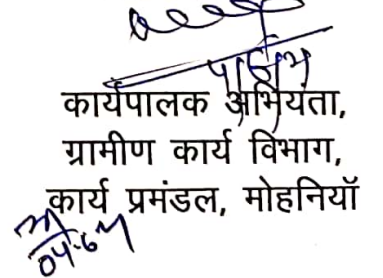 कार्यपालक अभियंता,
ग्रामीण कार्य विभाग,
कार्य प्रमंडल, मोहनियाॅ